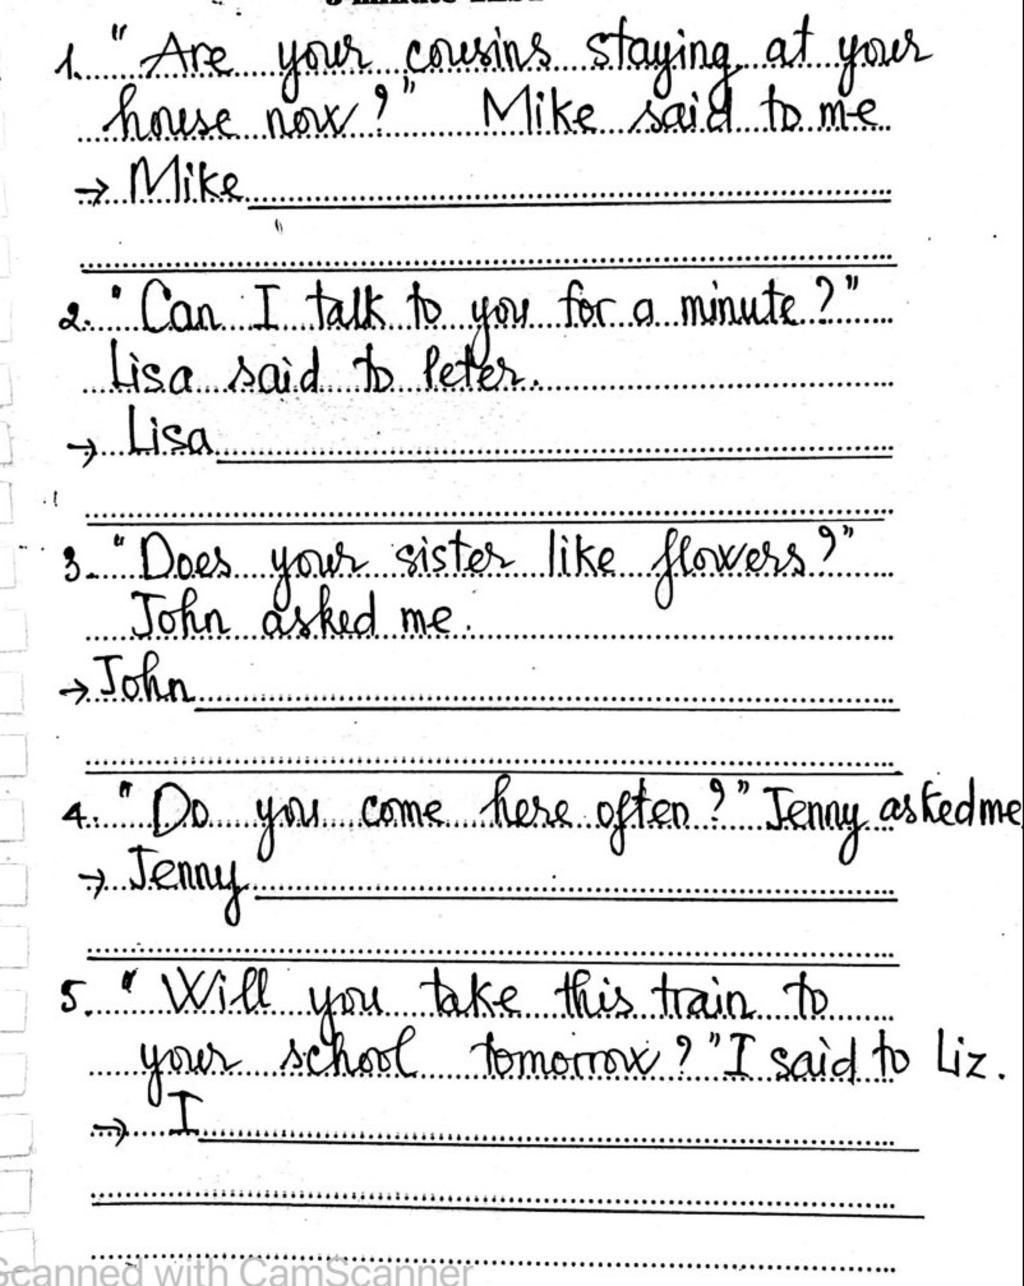 1. "Are your cousins staying at your
house now?" Mike said to me
→ Mike
2. "Can I talk to you for a minute?"
Lisa said to Peter.
→ Lisa
3. "Does your sister like flowers?"
John asked me.
→ John
4. "Do you come here often?" Jenny asked me
→ Jenny
5. "Will you take this train to
your school tomorrow?" I said to Liz.
→ I
Scanned with CamScanner